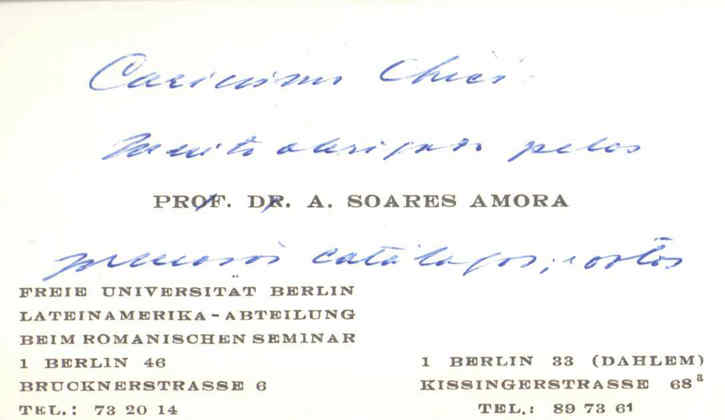 Muito obrigado pelos
PROF. DR. A. SOARES AMORA
catálogos,
FREIE UNIVERSITÄT BERLIN
LATEINAMERIKA-ABTEILUNG
BEIM ROMANISCHEN SEMINAR
1 BERLIN 46
BRUCKNERSTRASSE 6
TEL.: 73 20 14
1 BERLIN 33 (DAHLEM)
KISSINGERSTRASSE 68ª
TEL.: 89 73 61